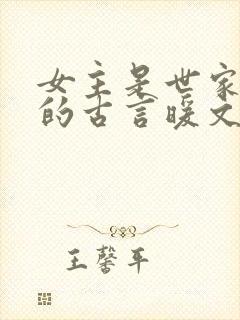 女主是世家
的古言暖文
王馨平